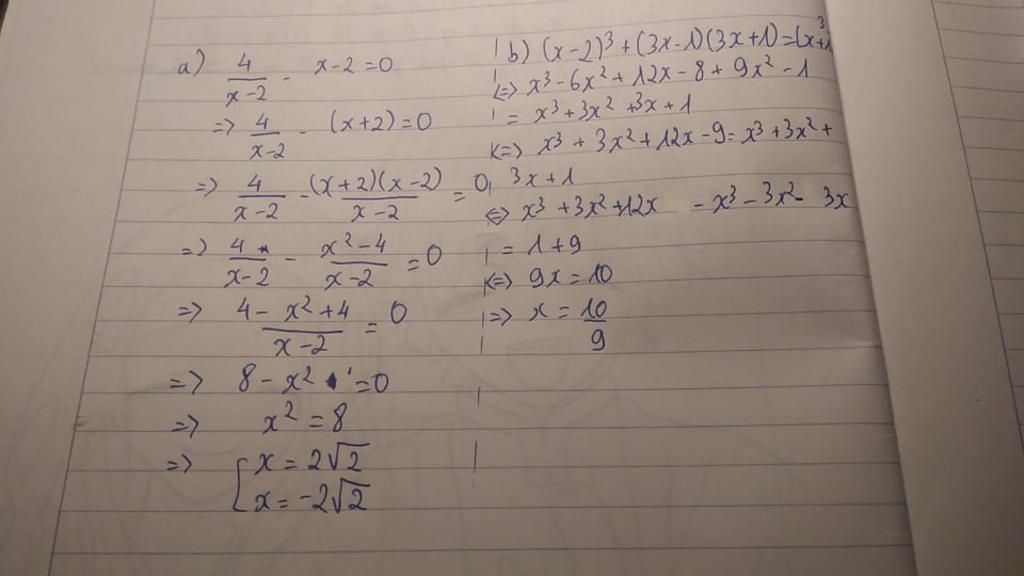 a) 4/(x-2) - x-2=0
=> 4/(x-2) - (x+2)=0
=> 4/(x-2) - (x+2)(x-2)/(x-2) = 0
=> 4/(x-2) - (x²-4)/(x-2) = 0
=> (4-x²+4)/(x-2) = 0
=> 8-x² =0
=> x²=8
=> [x=2√2
[x=-2√2
b) (x-2)³+(3x-1)(3x+1)=(x+1)³
<=> x³-6x²+12x-8+9x²-1
= x³+3x²+3x+1
<=> x³+3x²+12x-9=x³+3x²+
3x+1
<=> x³+3x²+12x -x³-3x²-3x
= 1+9
<=> 9x=10
=> x=10/9